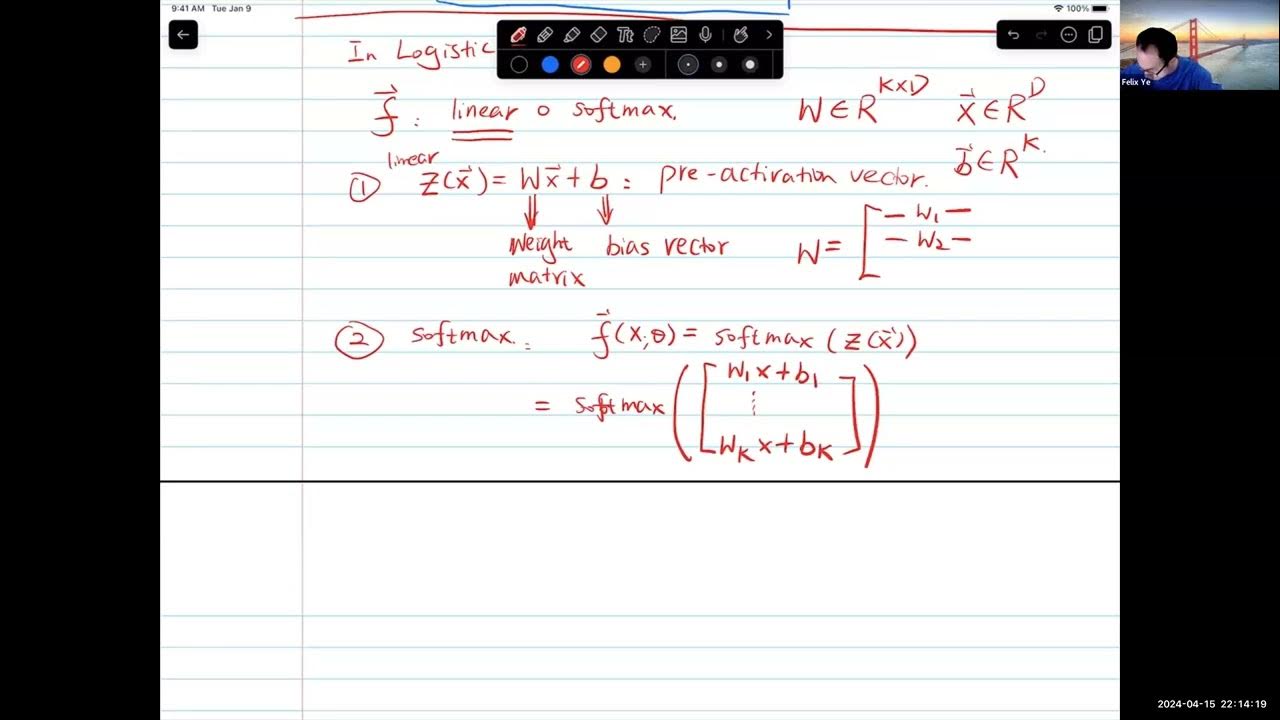 9:41 AM Tue Jan 9
100%
In Logistic
f⃗ : linear ∘ softmax. W ∈ R^{K×D} x⃗ ∈ R^D
b⃗ ∈ R^K.
linear
① Z(x⃗) = Wx⃗ + b : pre-activation vector.
⇓ ⇓
Weight bias vector
matrix
W = [ — W₁ —
— W₂ —
② softmax. : f⃗(X;θ) = softmax (Z(x⃗))
= softmax ( [ W₁x + b₁
⋮
W_K x + b_K ] )
Tt
Felix Ye
2024-04-15 22:14:19